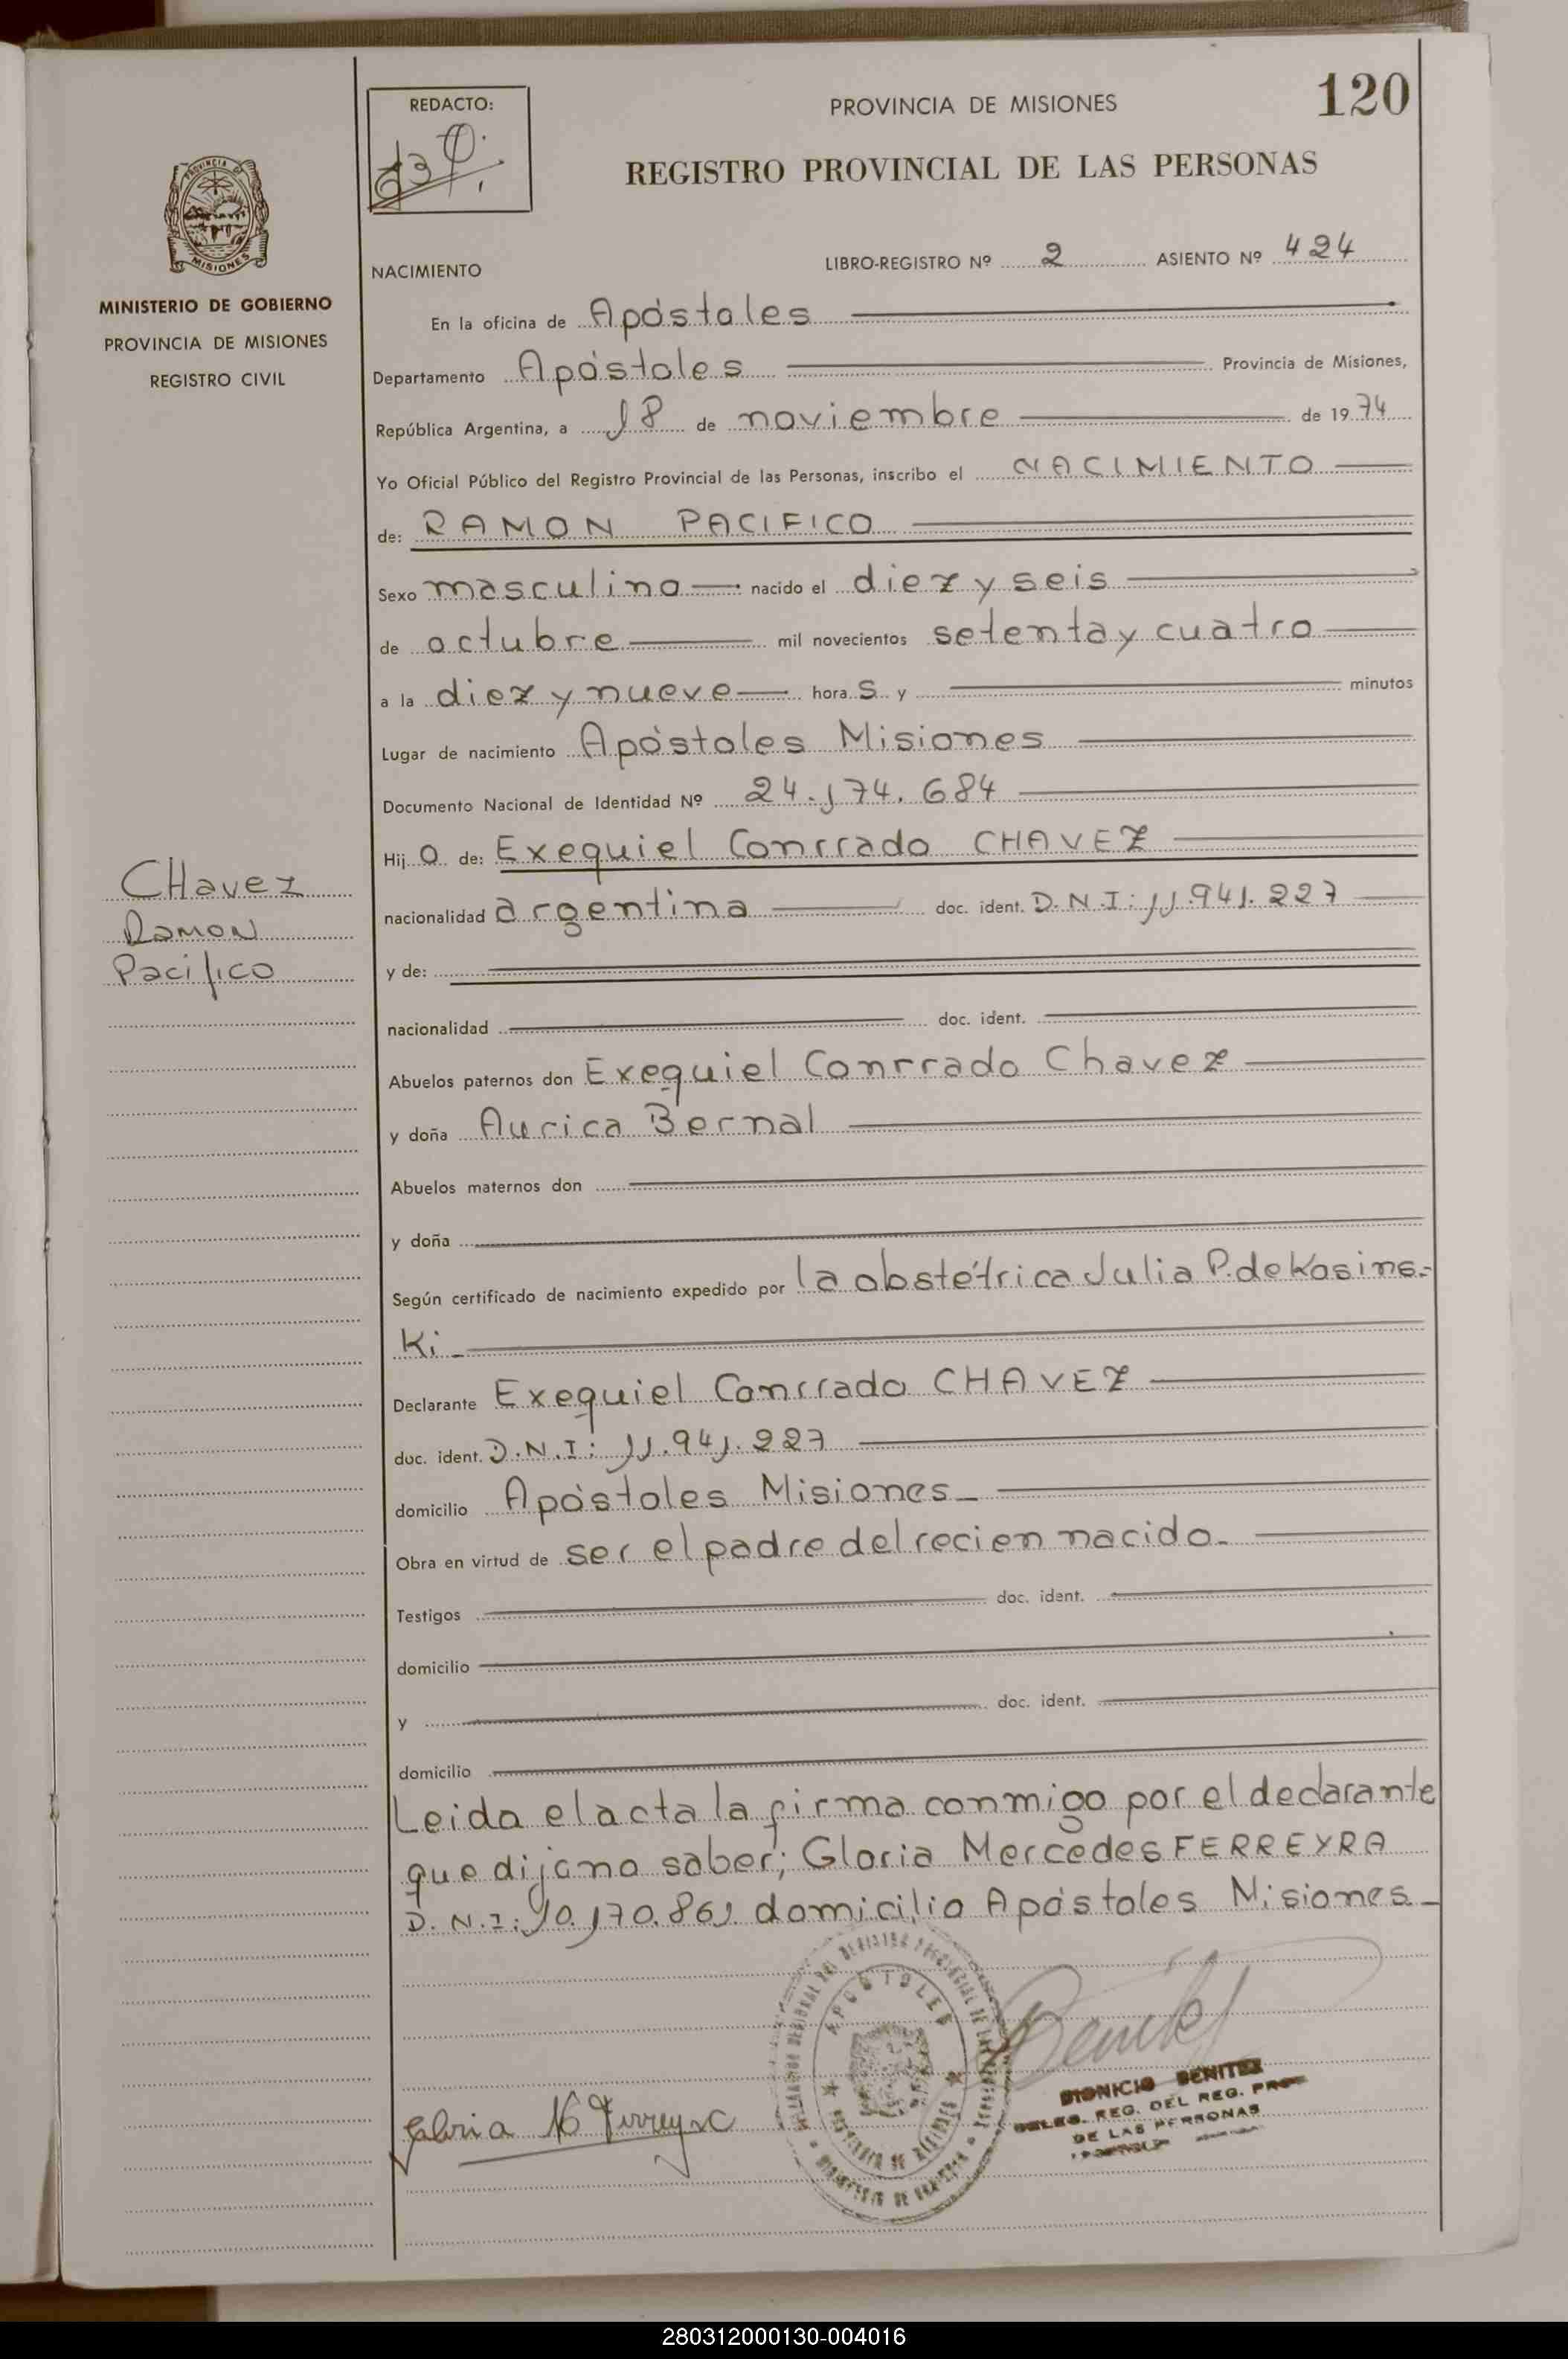 120
REDACTO:
PROVINCIA DE MISIONES
REGISTRO PROVINCIAL DE LAS PERSONAS
PROVINCIA
MISIONES
MINISTERIO DE GOBIERNO
PROVINCIA DE MISIONES
REGISTRO CIVIL
NACIMIENTO
LIBRO-REGISTRO Nº 2 ASIENTO Nº 424
En la oficina de Apóstoles
Departamento Apóstoles Provincia de Misiones,
República Argentina, a 18 de noviembre de 1974
Yo Oficial Público del Registro Provincial de las Personas, inscribo el NACIMIENTO
de: RAMON PACIFICO
Sexo masculino nacido el diez y seis
de octubre mil novecientos setenta y cuatro
a la diez y nueve hora s y minutos
Lugar de nacimiento Apóstoles Misiones
Documento Nacional de Identidad Nº 24.174.684
Hij o de: Exequiel Conrrado CHAVEZ
CHavez
Ramon
Pacifico
nacionalidad argentina doc. ident. D.N.I: 11.941.227
y de:
nacionalidad doc. ident.
Abuelos paternos don Exequiel Conrrado Chavez
y doña Aurica Bernal
Abuelos maternos don
y doña
Según certificado de nacimiento expedido por la obstétrica Julia P. de Kosins-
Ki
Declarante Exequiel Conrrado CHAVEZ
doc. ident. D.N.I: 11.941.227
domicilio Apóstoles Misiones
Obra en virtud de ser el padre del recien nacido.
Testigos doc. ident.
domicilio
y doc. ident.
domicilio
Leida el acta la firma conmigo por el declarante
que dijo no saber; Gloria Mercedes FERREYRA
D.N.I: 10.170.861 domicilio Apóstoles Misiones
APOSTOLES
Gloria M Ferreyra
DIONICIO BENITEZ
DELEG. REG. DEL REG. PROV
DE LAS PERSONAS
280312000130-004016